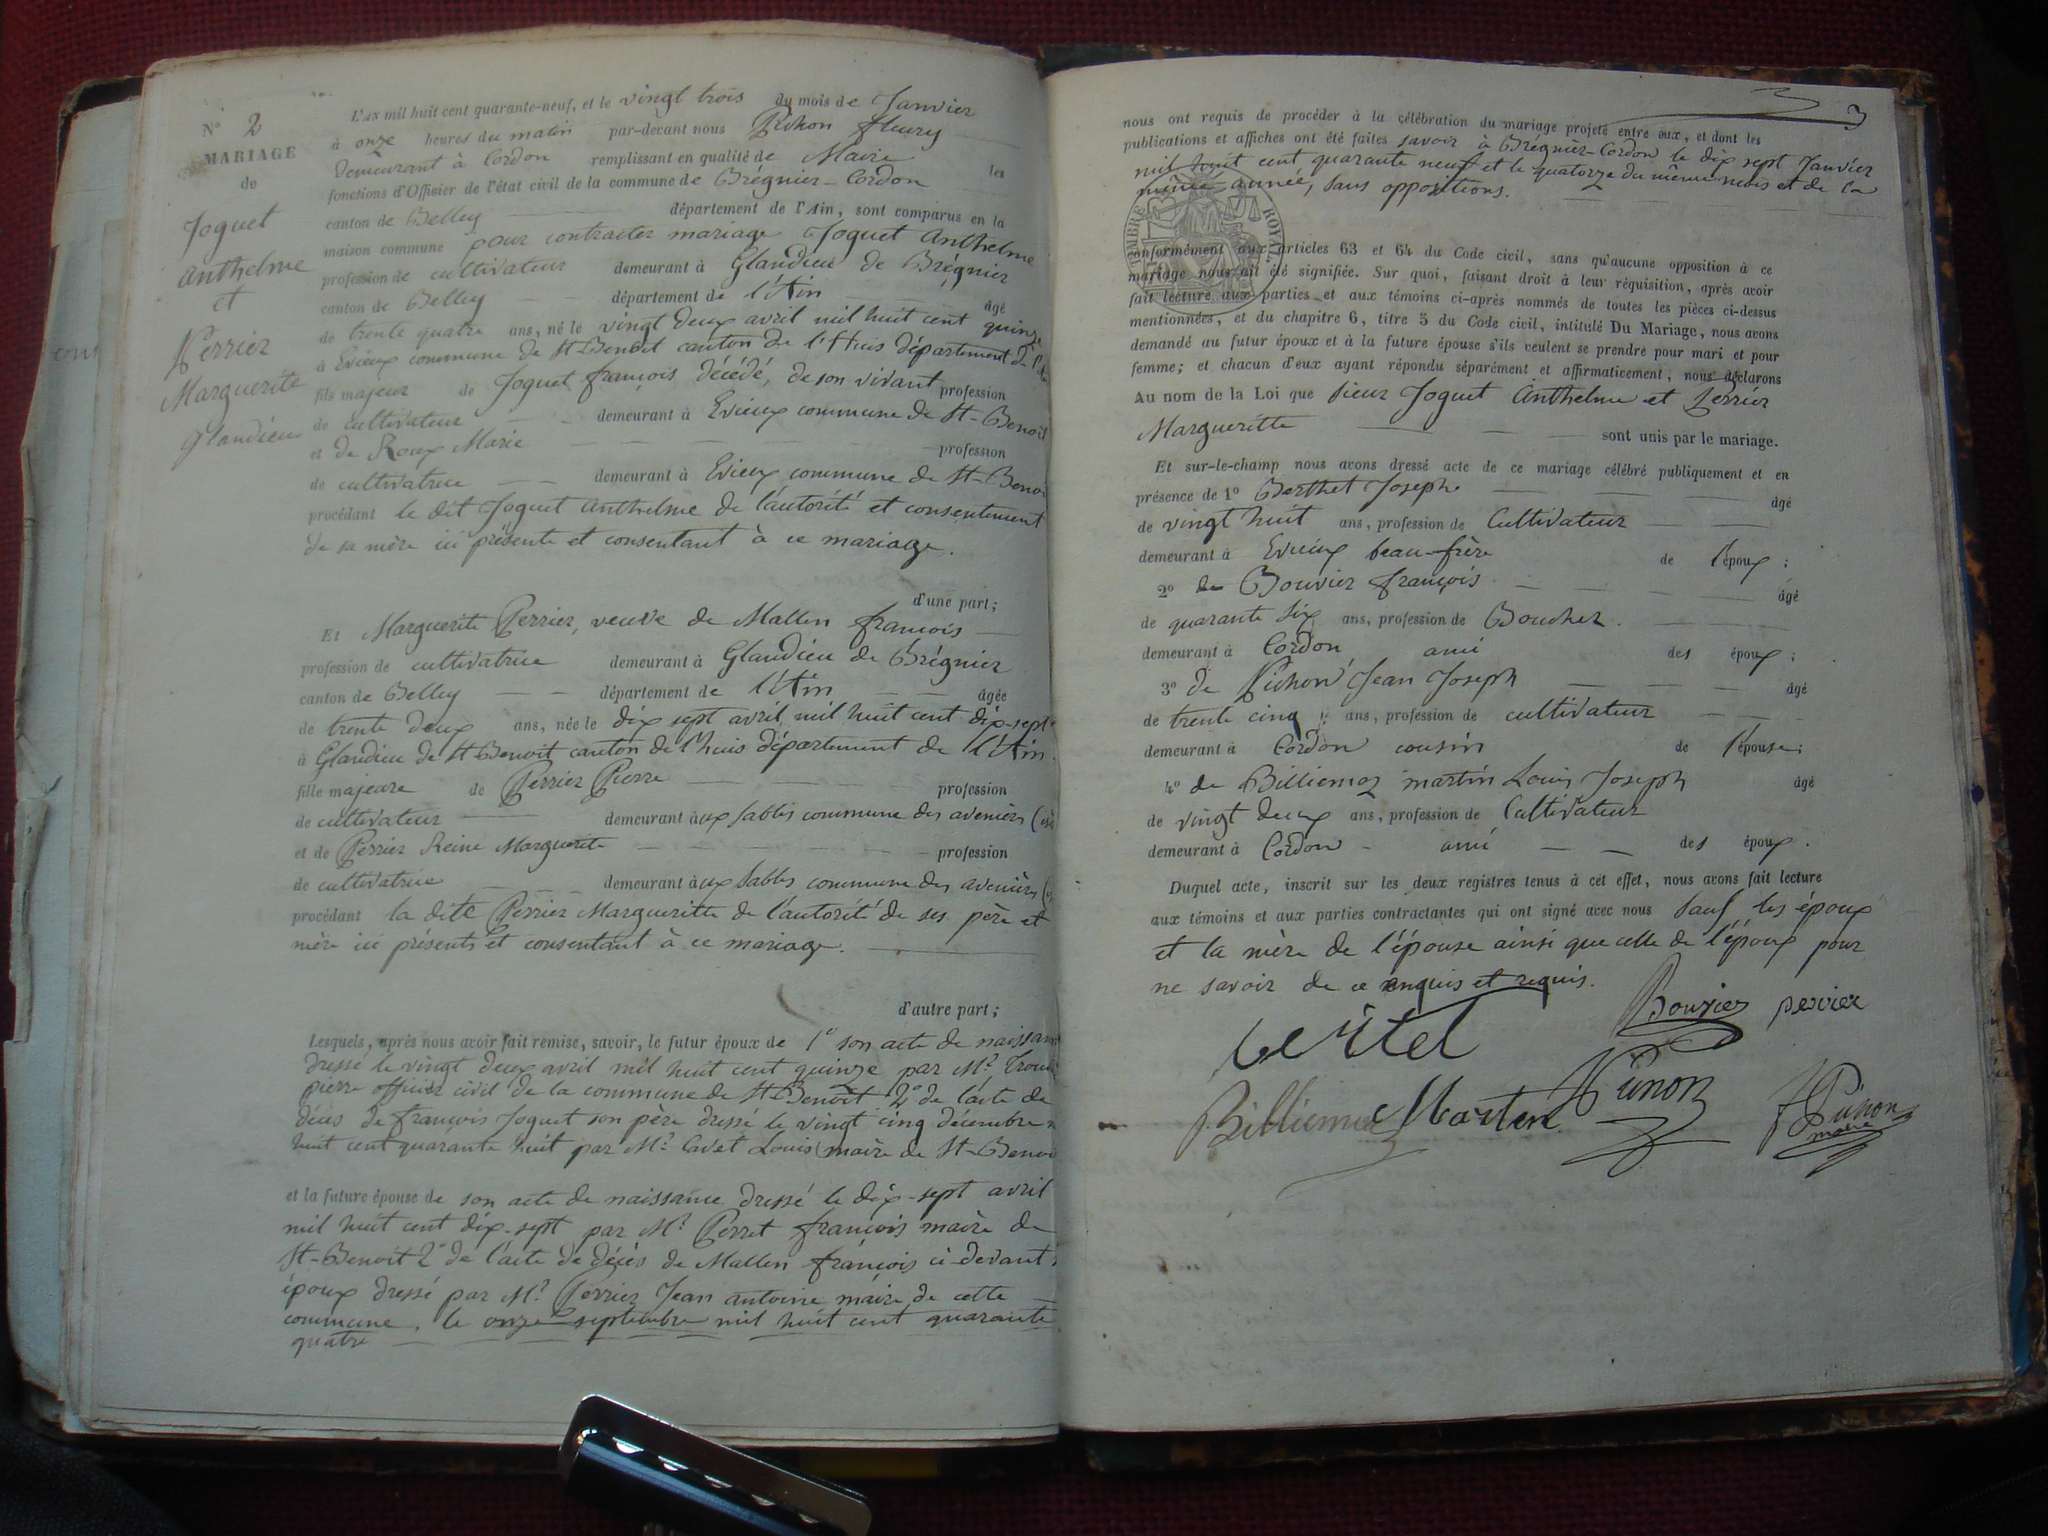 N° 2
MARIAGE
de
Joguet
Anthelme
et
Perrier
Marguerite
Glandieu
L'an mil huit cent quarante-neuf, et le vingt trois du mois de Janvier
à onze heures du matin par-devant nous Pichon fleury
demeurant à Cordon remplissant en qualité de Maire les
fonctions d'Officier de l'état civil de la commune de Brégnier-Cordon
canton de Belley département de l'Ain, sont comparus en la
maison commune pour contracter mariage Joguet Anthelme
profession de cultivateur demeurant à Glandieu de Brégnier
canton de Belley département de l'Ain âgé
de trente quatre ans, né le vingt deux avril mil huit cent quinze
à Evieux commune de St Benoit canton de l'Huis département de l'Ain
fils majeur de Joguet françois décédé, de son vivant profession
de cultivateur demeurant à Evieux commune de St-Benoit
et de Roux Marie profession
de cultivatrice demeurant à Evieux commune de St-Benoi
procédant le dit Joguet Anthelme de l'autorité et consentement
de sa mère ici présente et consentant à ce mariage.
d'une part;
Et Marguerite Perrier, veuve de Mallen françois
profession de cultivatrice demeurant à Glandieu de Brégnier
canton de Belley département de l'Ain âgée
de trente deux ans, née le dix sept avril mil huit cent dix-sept
à Glandieu de St Benoit canton de l'huis département de l'Ain.
fille majeure de Perrier Pierre profession
de cultivateur demeurant aux Sables commune des avenières
et de Perrier Reine Marguerite profession
de cultivatrice demeurant aux Sables commune des avenières
procédant la dite Perrier Margueritte de l'autorité de ses père et
mère ici présents et consentant à ce mariage.
d'autre part;
Lesquels, après nous avoir fait remise, savoir, le futur époux de 1° son acte de naissan
dressé le vingt deux avril mil huit cent quinze par Mr.
pierre officier civil de la commune de St Benoit 2° de l'acte de
décès de françois Joguet son père dressé le vingt cinq décembre
huit cent quarante huit par Mr. Cadet Louis maire de St-Benoi
et la future épouse de son acte de naissance dressé le dix-sept avril
mil huit cent dix-sept par Mr. Perret françois maire de
St-Benoit 2° de l'acte de décès de Mallen françois ci-devant
époux dressé par Mr. Perrier Jean antoine maire de cette
commune. le onze septembre mil huit cent quarante
quatre
3
nous ont requis de procéder à la célébration du mariage projeté entre eux, et dont les
publications et affiches ont été faites savoir à Brégnier-Cordon le dix sept Janvier
mil huit cent quarante neuf et le quatorze du même mois et de la
même année, sans oppositions.
TIMBRE ROYAL
conformément aux articles 63 et 64 du Code civil, sans qu'aucune opposition à ce
mariage nous ait été signifiée. Sur quoi, faisant droit à leur réquisition, après avoir
fait lecture aux parties et aux témoins ci-après nommés de toutes les pièces ci-dessus
mentionnées, et du chapitre 6, titre 5 du Code civil, intitulé Du Mariage, nous avons
demandé au futur époux et à la future épouse s'ils veulent se prendre pour mari et pour
femme; et chacun d'eux ayant répondu séparément et affirmativement, nous déclarons
Au nom de la Loi que sieur Joguet Anthelme et Perrier
Margueritte sont unis par le mariage.
Et sur-le-champ nous avons dressé acte de ce mariage célébré publiquement et en
présence de 1° Berthet Joseph âgé
de vingt huit ans, profession de Cultivateur
demeurant à Evieux beau-frère de l'époux;
2° de Bouvier françois âgé
de quarante six ans, profession de Boucher.
demeurant à Cordon ami des époux;
3° de Pichon Jean Joseph âgé
de trente cinq ans, profession de cultivateur
demeurant à Cordon cousin de l'épouse;
4° de Billiemaz martin Louis Joseph âgé
de vingt deux ans, profession de Cultivateur
demeurant à Cordon ami des époux.
Duquel acte, inscrit sur les deux registres tenus à cet effet, nous avons fait lecture
aux témoins et aux parties contractantes qui ont signé avec nous sauf les époux
et la mère de l'épouse ainsi que celle de l'époux pour
ne savoir de ce enquis et requis.
Bouvier perrier
Billiemaz Martin Pichon Pichon
maire